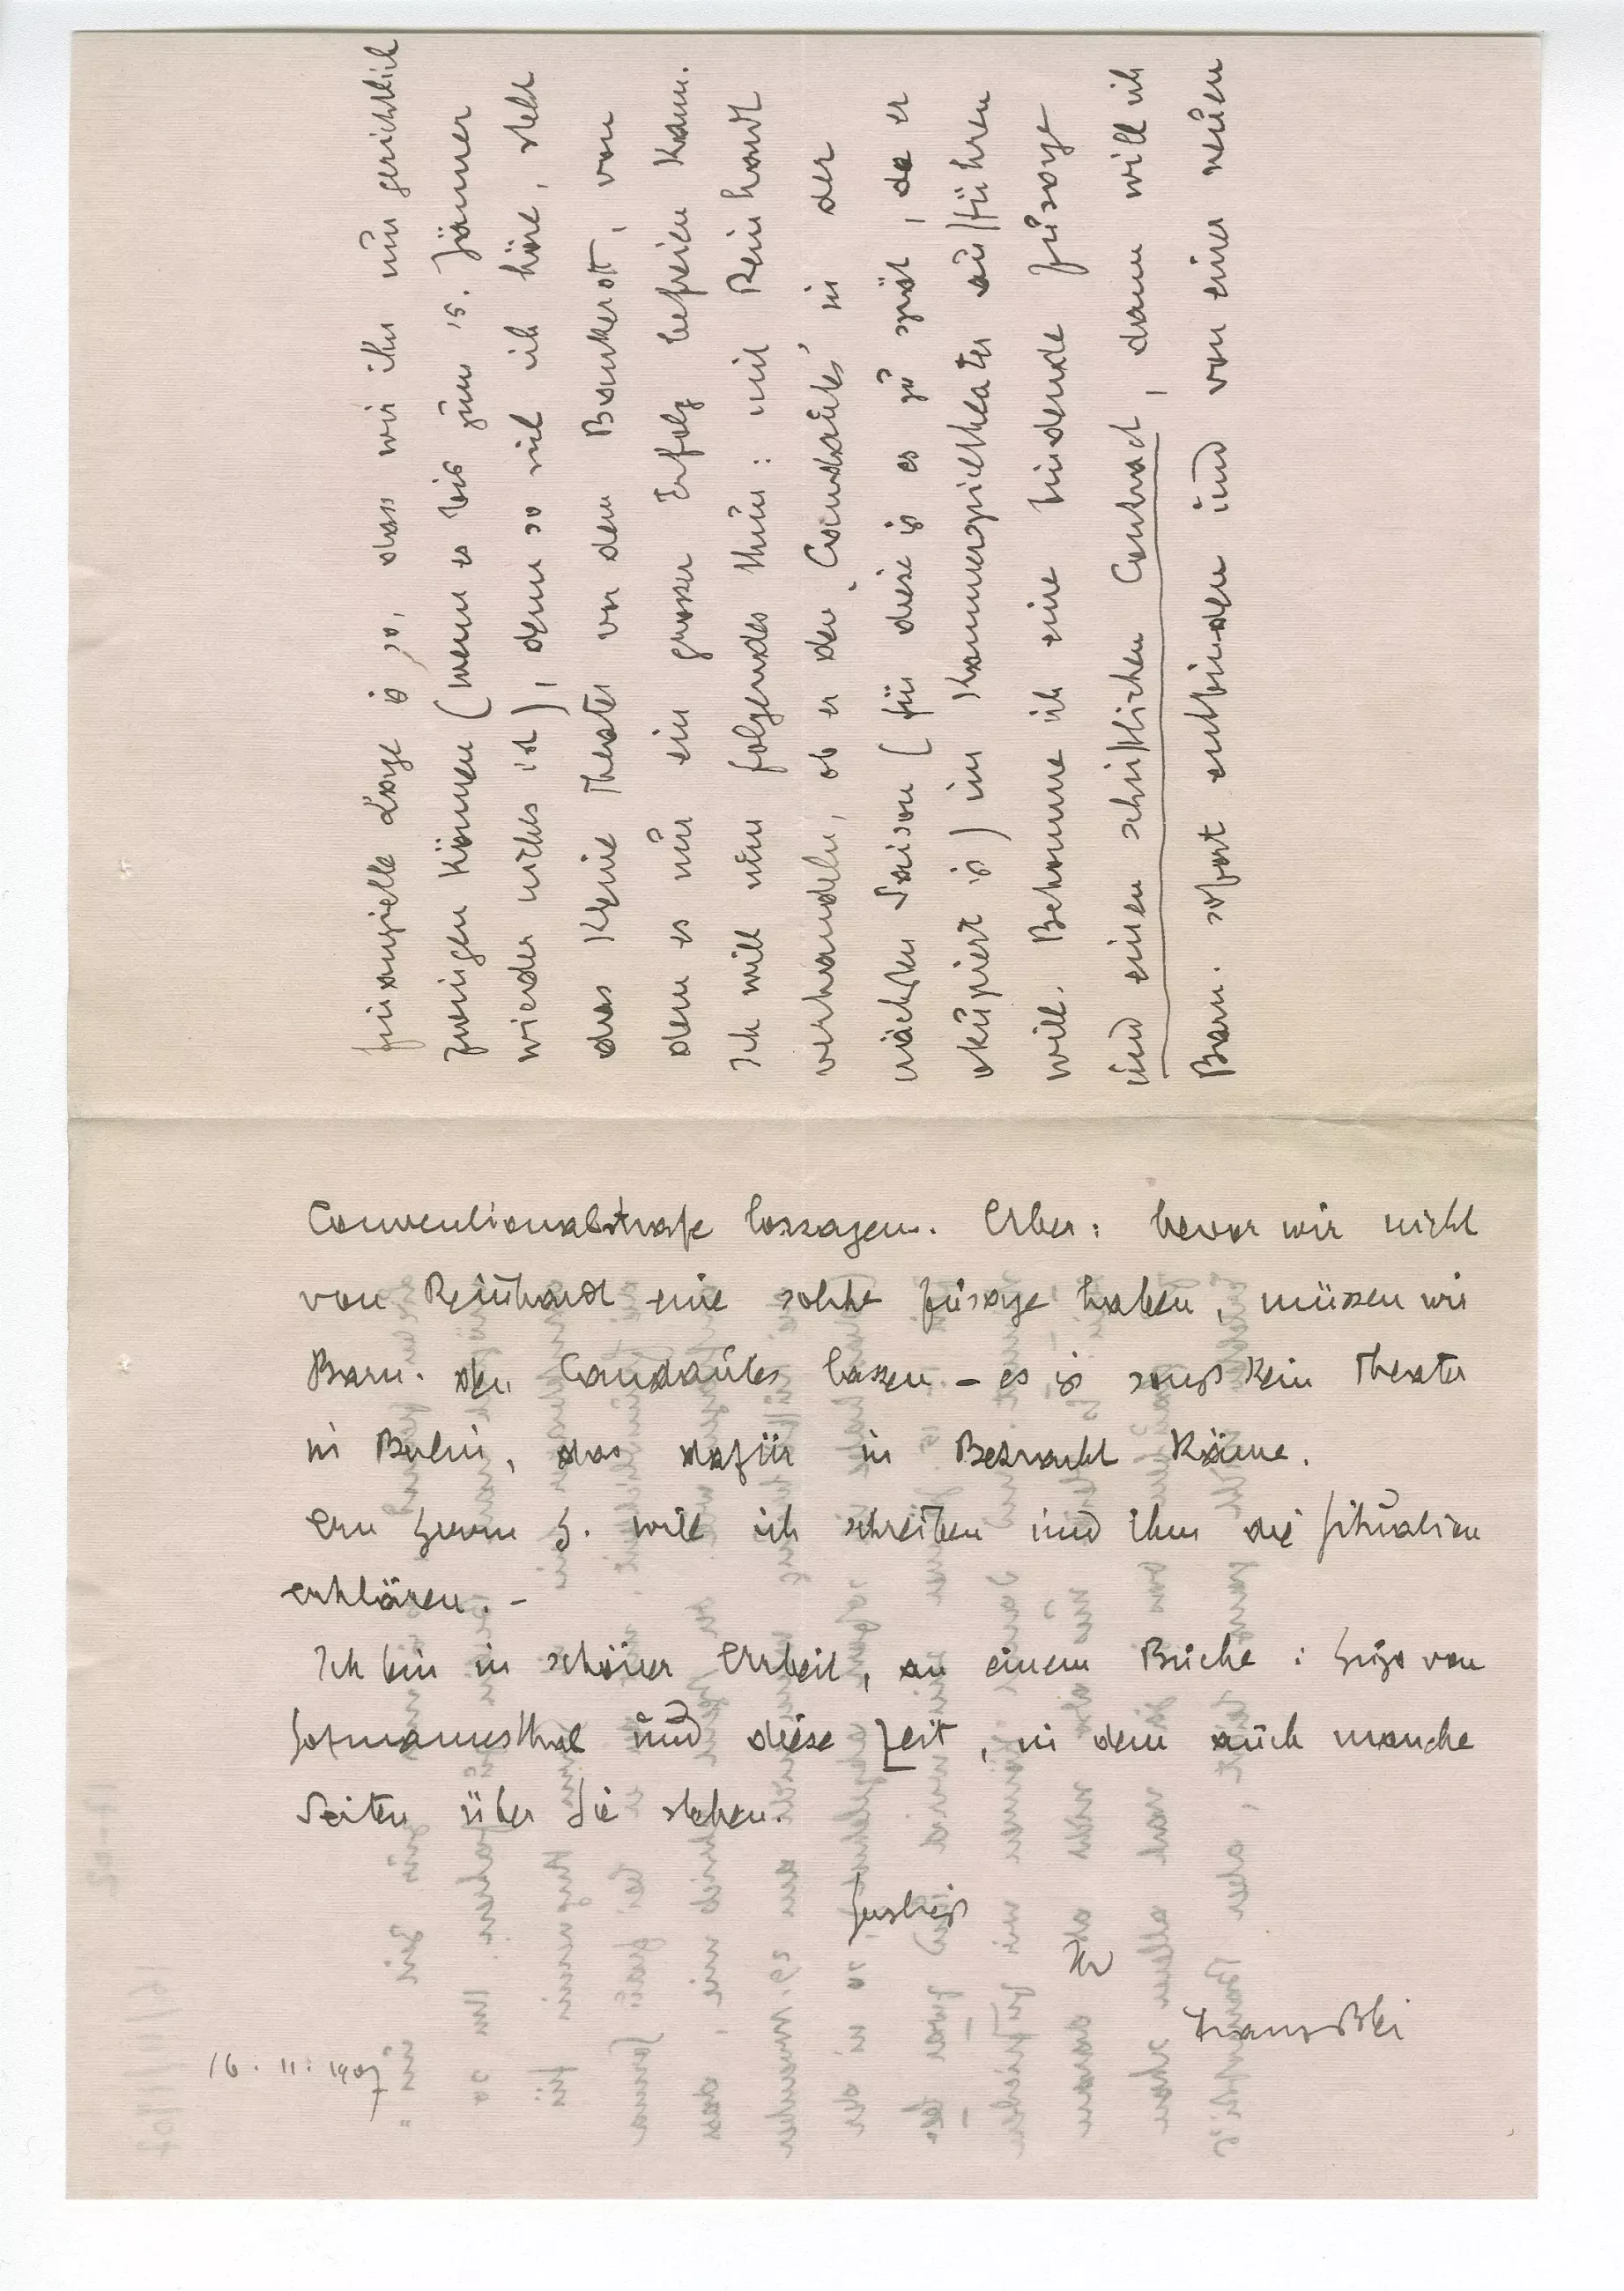 finanzielle Lage is so, dass wir ihn nun gerichtlich
zwingen können (wenn es bis zum 15. Jänner
wieder nichts ist), denn so viel ich höre, steht
das Kleine Theater vor dem Bankerott, von
dem es nur ein grosser Erfolg befreien kann.
Ich will nun folgendes thun: mit Reinhardt
verhandeln, ob er den ‚Candaules' in der
nächsten Saison (für diese is es zu spät, da er
okupiert is) im Kammerspieltheater aufführen
will. Bekomme ich eine bindende Zusage
und einen schriftlichen Contract, dann will ich
Barn. sofort entbinden und von einer neuen
Conventionalstrafe lossagen. Aber: bevor wir nicht
von Reinhardt eine solche Zusage haben, müssen wir
Barn. den Candaules lassen – es is sonst kein Theater
in Berlin, das dafür in Betracht käme.
An Herrn H. will ich schreiben und ihm die Situation
erklären. –
Ich bin in schöner Arbeit, an einem Buche: Hugo von
Hofmannsthal und diese Zeit, in dem auch manche
Seiten über Sie stehen.
Herzlichst
Ihr
Franz Blei
16. 11. 1907